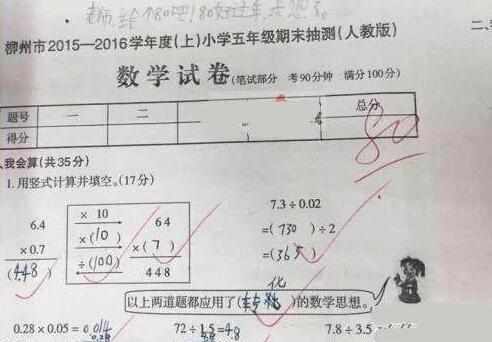 老师,给个80吧!80好过年
柳州市2015—2016学年度(上)小学五年级期末抽测(人教版)
数学试卷(笔试部分 考90分钟 满分100分)
题号 一 二 总分
得分 80
我会算(共35分)
1.用竖式计算并填空。(17分)
6.4 ×0.7 (4.48)
× 10 ×(10) ÷(100)
64 ×(7) 448
7.3÷0.02
=(730)÷2
=(365)
以上两道题都应用了(转化)的数学思想。
0.28×0.05=0.014 72÷1.5=48 7.8÷3.5